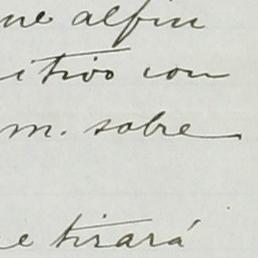 ne alfin
itivo con
m. sobre
e tirará